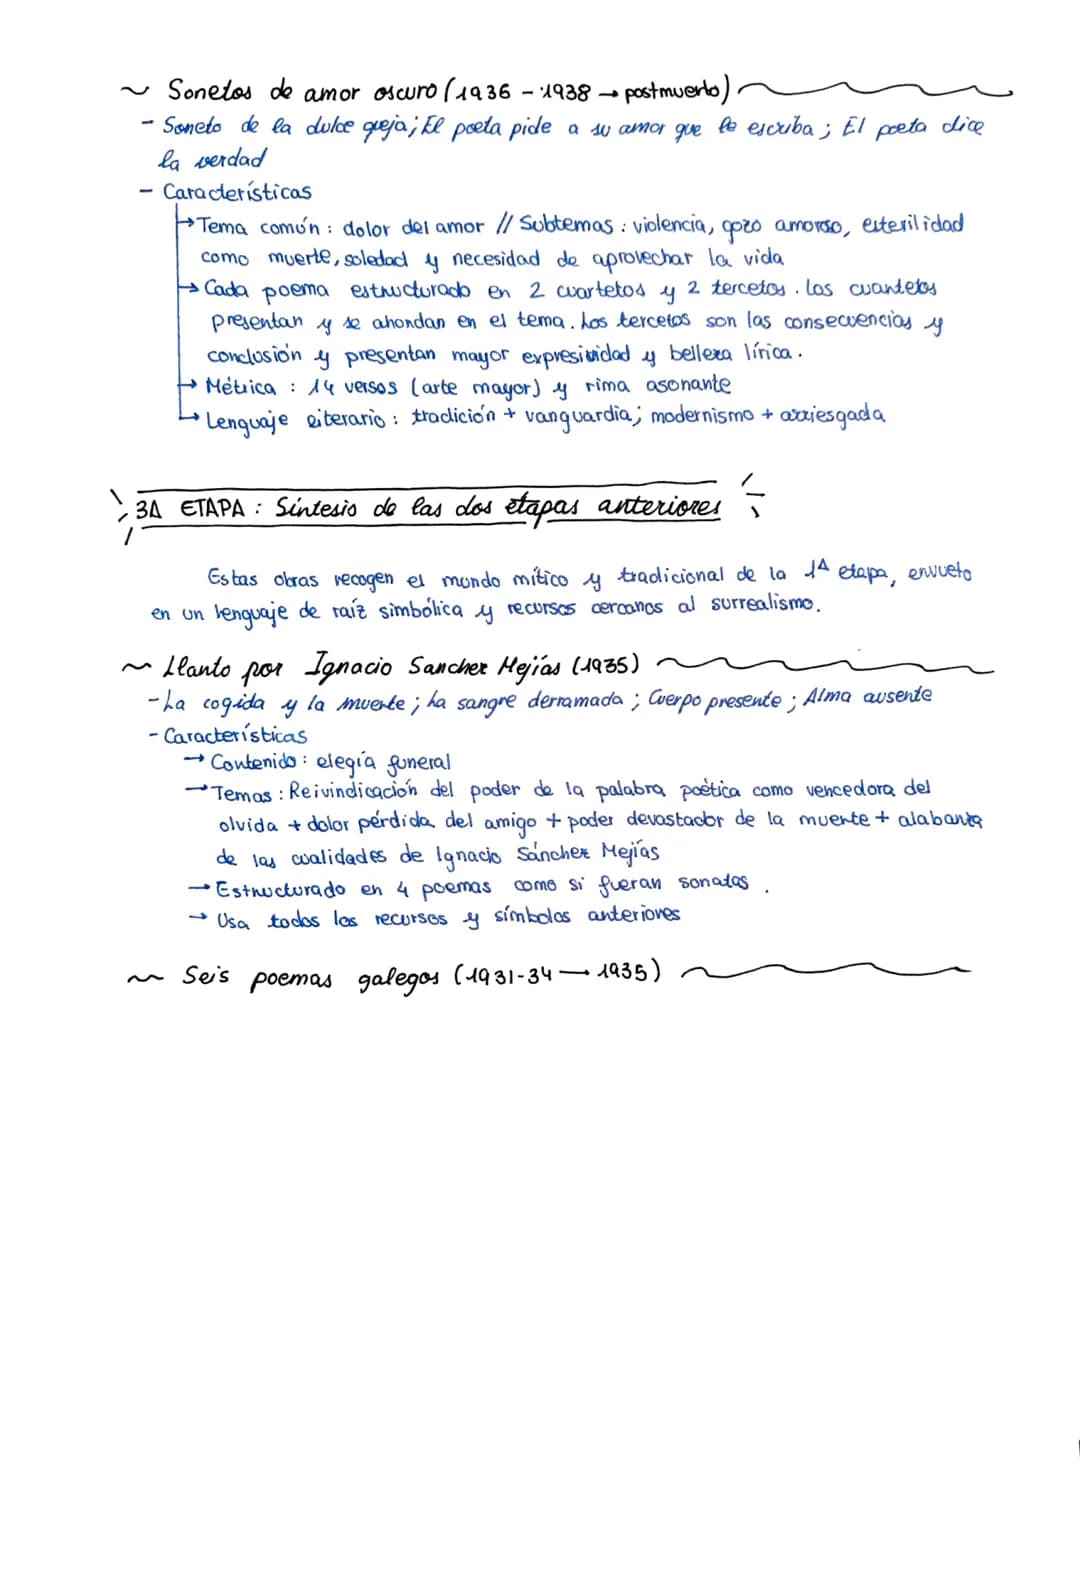 ~ Sonetos de amor oscuro (1936 - 1938 → postmuerto)
- Soneto de la dulce queja; El poeta pide a su amor que le escriba; El poeta dice
la verdad
- Características
→ Tema común: dolor del amor // Subtemas: violencia, gozo amoroso, esterilidad
como muerte, soledad y necesidad de aprovechar la vida
→ Cada poema estructurado en 2 cuartetos y 2 tercetos. Los cuartetos
presentan y se ahondan en el tema. Los tercetos son las consecuencias y
conclusión y presentan mayor expresividad y belleza lírica.
→ Métrica: 14 versos (arte mayor) y rima asonante
→ Lenguaje literario: tradición + vanguardia; modernismo + arriesgada
3A ETAPA: Síntesis de las dos etapas anteriores
Estas obras recogen el mundo mítico y tradicional de la 1A etapa, envueto
en un lenguaje de raíz simbólica y recursos cercanos al surrealismo.
~ Llanto por Ignacio Sanchez Mejías (1935)
- La cogida y la muerte; La sangre derramada; Cuerpo presente; Alma ausente
- Características
→ Contenido: elegía funeral
→ Temas: Reivindicación del poder de la palabra poética como vencedora del
olvida + dolor pérdida del amigo + poder devastador de la muerte + alabanza
de las cualidades de Ignacio Sánchez Mejías
→ Estructurado en 4 poemas como si fueran sonatas.
→ Usa todos los recursos y símbolos anteriores
~ Seis poemas galegos (1931-34 → 1935)